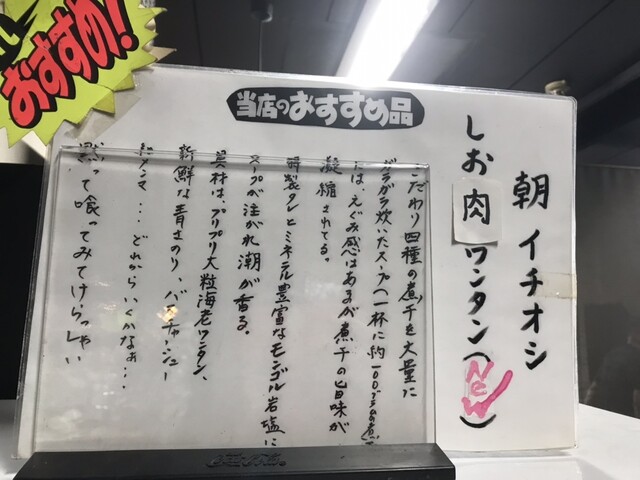 おすすめ!
当店のおすすめ品
朝イチオシ
しお肉ワンタン(New)
こだわり四種の煮干を大量に
ガラガラ炊いたスープ(一杯に約100グラムの煮干
には、えぐみ感はあるが煮干の旨味が
凝縮されてる。
特製タレとミネラル豊富なモンゴル岩塩に
スープが注がれ潮が香る。
具材は、プリプリ大粒海老ワンタン、
新鮮な青さのり、バーチャーシュー
どれからいくかなぁ…
黙って喰ってみてけらっしゃい